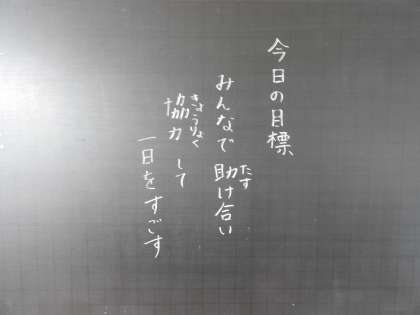 今日の目標
みんなで助け合い
たす
協力して
きょうりょく
一日をすごす